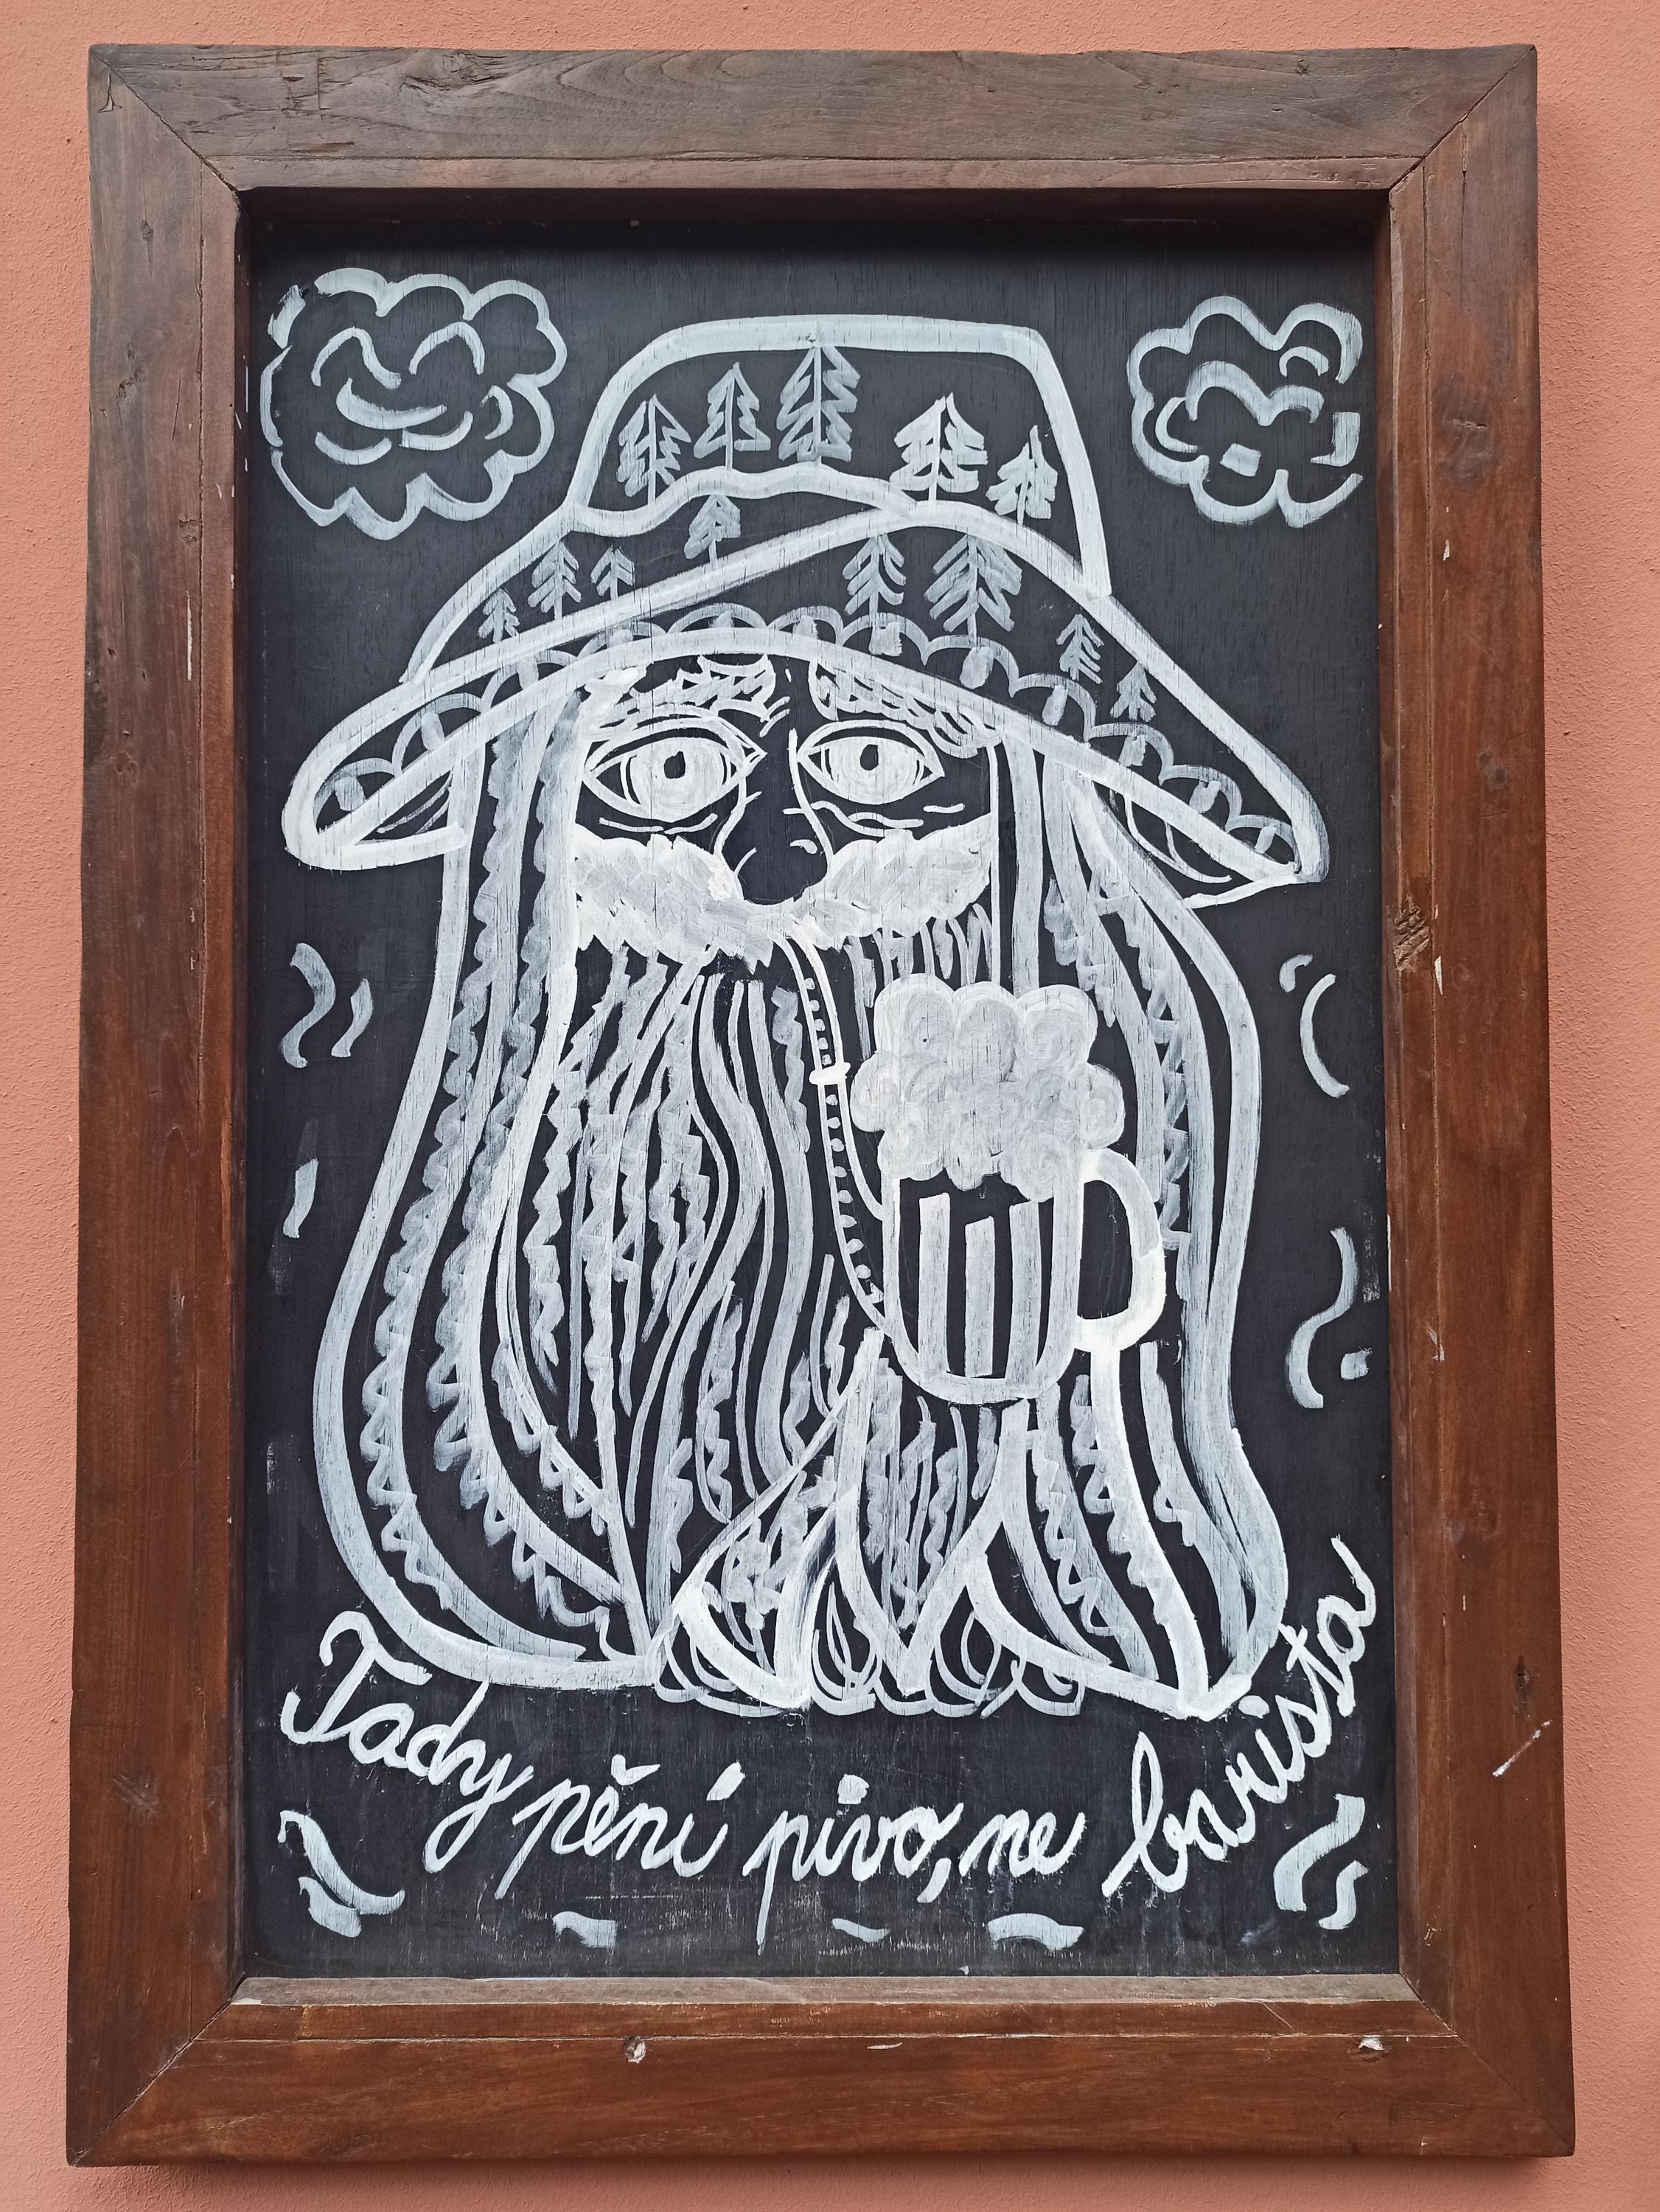 Tady pění pivo, ne barista